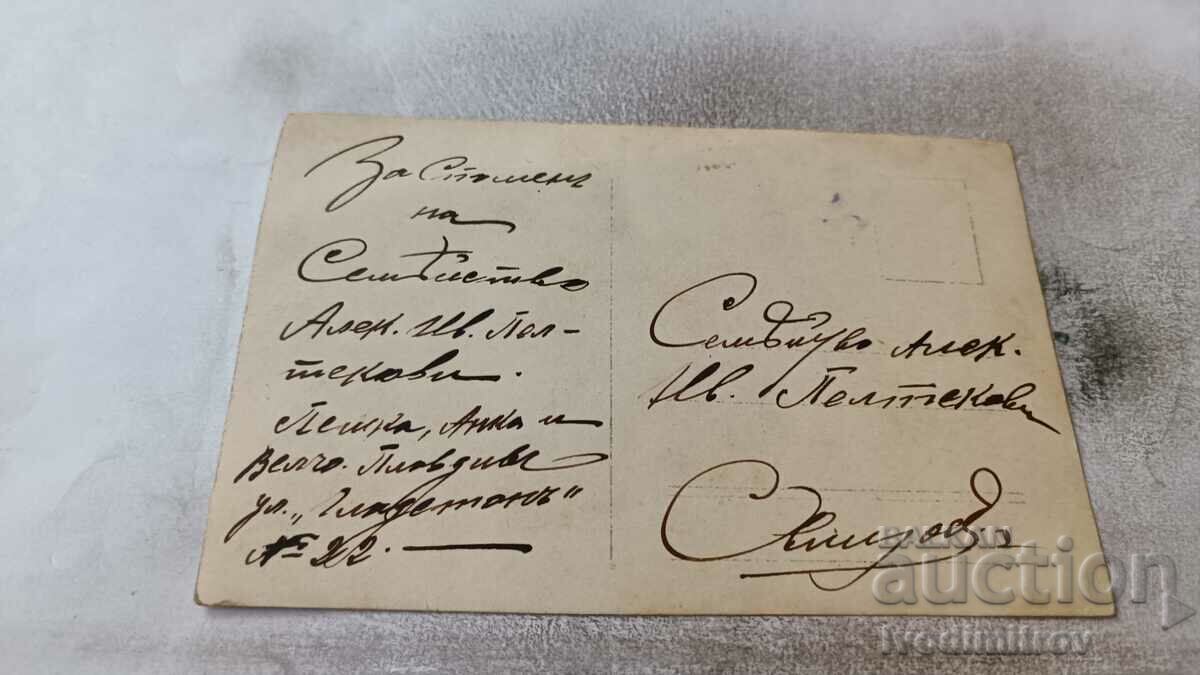 За Споменъ
на
Семѣйство
Алек. Ив. Пел-
текови.
Пенка, Анка и
Велчо. Пловдивъ
ул. „Гладстонъ“
№ 22.
Семѣйство Алек.
Ив. Пелтекови
Свищовъ
БАЛКАН
auction
ivodimitrov